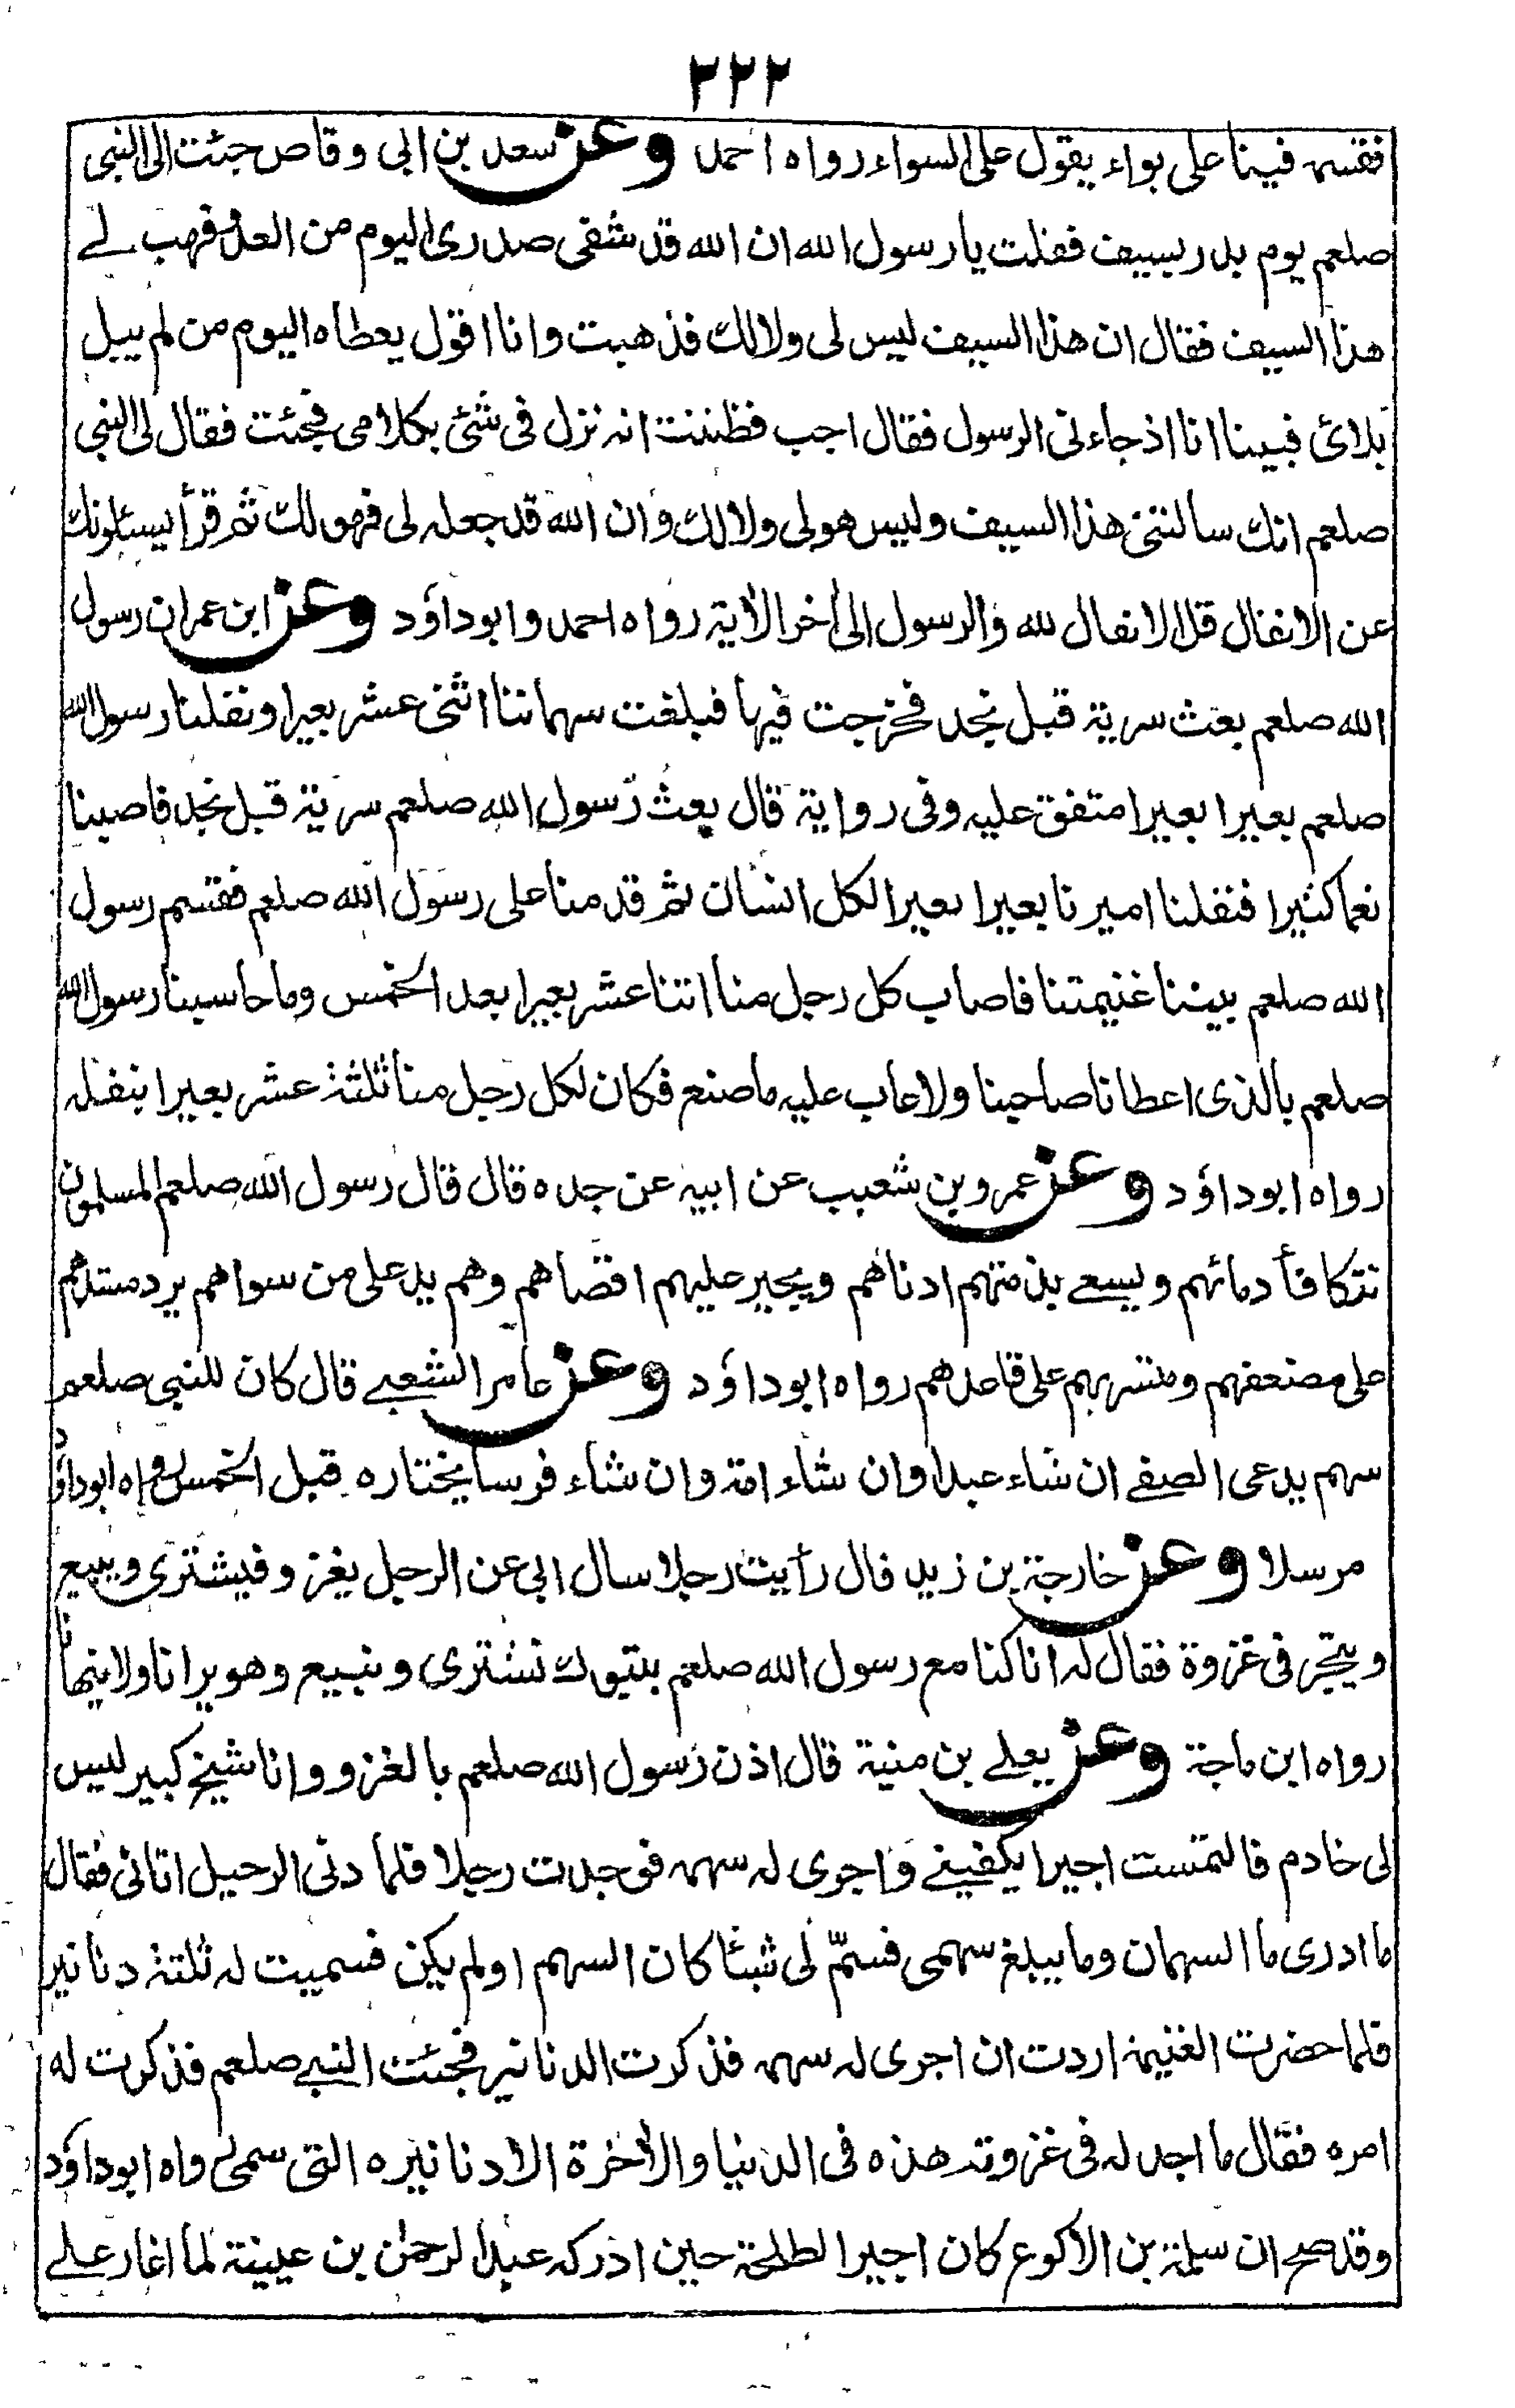 ٢٢٢
فقسمه فينا على بواء يقول على السواء رواه احمد وعن سعد بن ابى وقاص جئت الى النبى
صلعم يوم بدر بسيف فقلت يا رسول الله ان الله قد شفى صدرى اليوم من العدو فهب لے
هذا السيف فقال ان هذا السيف ليس لى ولا لك فذهبت وانا اقول يعطاه اليوم من لم يبل
بلائى فبينا انا اذ جاءنى الرسول فقال اجب فظننت انه نزل فى شئى بكلامى فجئت فقال لى النبى
صلعم انك سالتنى هذا السيف وليس هو لى ولا لك وان الله قد جعله لى فهو لك ثم قرأ يسئلونك
عن الانفال قل الانفال لله والرسول الى أخر الأية رواه احمد وابوداؤد وعن ابن عمر ان رسول
الله صلعم بعث سرية قبل نجد فخرجت فيها فبلغت سهماننا اثنى عشر بعيرا ونفلنا رسول الله
صلعم بعيرا بعيرا متفق عليه وفى رواية قال بعث رسول الله صلعم سرية قبل نجد فاصبنا
نعما كثيرا فنفلنا اميرنا بعيرا بعيرا لكل انسان ثم قدمنا على رسول الله صلعم فقسم رسول
الله صلعم بيننا غنيمتنا فاصاب كل رجل منا اثنا عشر بعيرا بعد الخمس وما حاسبنا رسول الله
صلعم بالذى اعطانا صاحبنا ولا عاب عليه ما صنع فكان لكل رجل منا ثلثة عشر بعيرا بنفله
رواه ابوداؤد وعن عمرو بن شعيب عن ابيه عن جده قال قال رسول الله صلعم المسلمون
تتكافأ دمائهم ويسعے بذمتهم ادناهم ويجير عليهم اقصاهم وهم يد على من سواهم يرد مشدهم
على مضعفهم ومتسريهم على قاعدهم رواه ابوداؤد وعن عامر الشعبے قال كان للنبى صلعم
سهم يدعى الصفے ان شاء عبدا وان شاء امة وان شاء فرسا يختاره قبل الخمس رواه ابوداؤد
مرسلا وعن خارجة بن زيد قال رأيت رجلا سال ابى عن الرجل يغزو فيشترى ويبيع
ويتجر فى غزوة فقال له انا كنا مع رسول الله صلعم بتبوك نشترى ونبيع وهو يرانا ولا ينهانا
رواه ابن ماجة وعن يعلے بن منية قال اذن رسول الله صلعم بالغزو وانا شيخ كبير ليس
لى خادم فالتمست اجيرا يكفينے واجرى له سهمه فوجدت رجلا فلما دنى الرحيل اتانى فقال
ما ادرى ما السهمان وما يبلغ سهمى فسمّ لى شيئا كان السهم او لم يكن فسميت له ثلثة دنانير
فلما حضرت الغنيمة اردت ان اجرى له سهمه فذكرت الدنانير فجئت النبے صلعم فذكرت له
امره فقال ما اجد له فى غزوته هذه فى الدنيا والأخرة الا دنانيره التى سمى رواه ابوداؤد
وقد صح ان سلمة بن الاكوع كان اجيرا لطلحة حين ادركه عبد الرحمن بن عيينة لما اغار علے